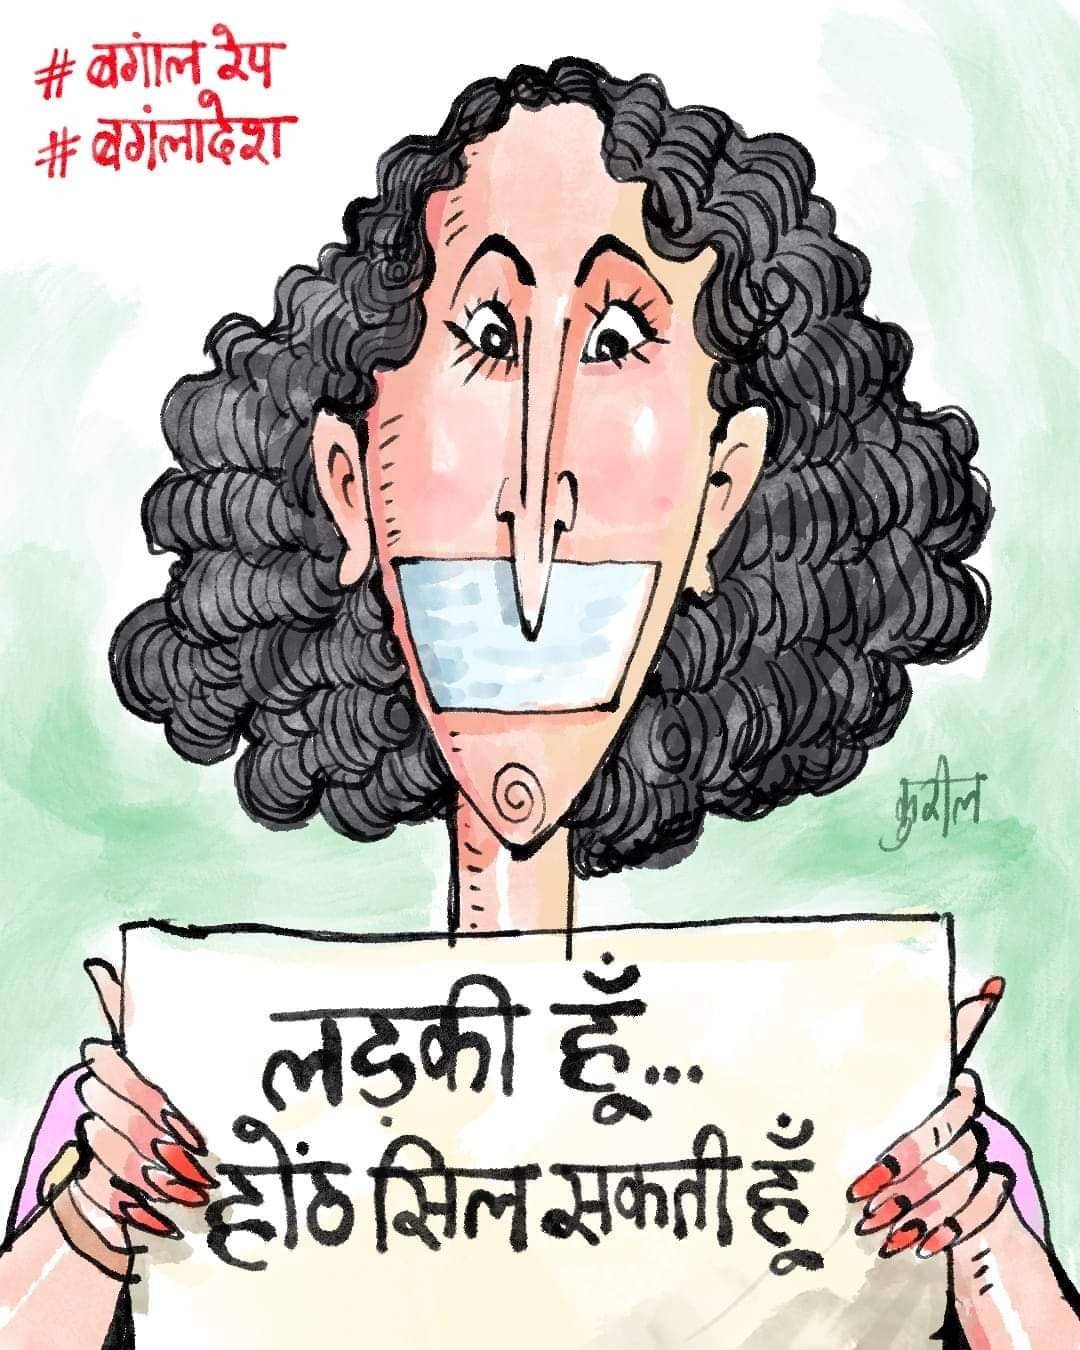 # बगांल रेप
# बगंलादेश
कुरील
लड़की हूँ...
होंठ सिल सकती हूँ